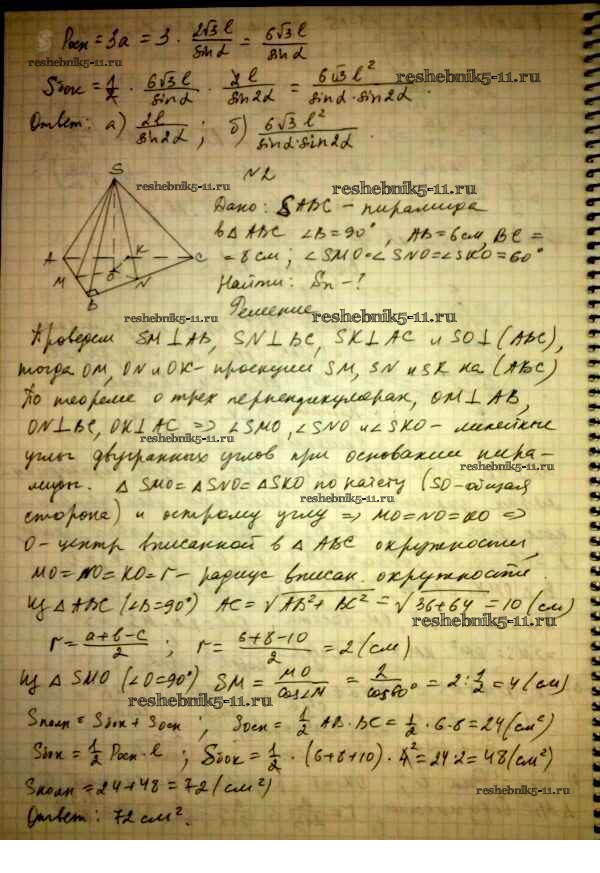 Pосн = 3a = 3 · 2√3 l / sin α = 6√3 l / sin α
reshebnik5-11.ru
Sбок = 1/2 · 6√3 l / sin α · 2 l / sin 2α = 6√3 l² / sin α · sin 2α.
reshebnik5-11.ru
reshebnik5-11.ru
Ответ: а) 2l / sin 2α ; б) 6√3 l² / sin α · sin 2α.
N2
S
reshebnik5-11.ru
reshebnik5-11.ru
Дано: SABC – пирамида
в Δ ABC ∠B = 90°, AB = 6 см, BC =
= 8 см; ∠SMO = ∠SNO = ∠SKO = 60°
Найти: Sп – ?
A K C
M O N
B
reshebnik5-11.ru
Решение
reshebnik5-11.ru
Проведем SM ⊥ AB, SN ⊥ BC, SK ⊥ AC и SO ⊥ (ABC),
тогда OM, ON и OK – проекции SM, SN и SK на (ABC)
reshebnik5-11.ru
По теореме о трех перпендикулярах, OM ⊥ AB,
ON ⊥ BC, OK ⊥ AC => ∠SMO, ∠SNO и ∠SKO – линейные
reshebnik5-11.ru
углы двугранных углов при основании пира-
reshebnik5-11.ru
миды. Δ SMO = Δ SNO = Δ SKO по катету (SO – общая
reshebnik5-11.ru
сторона) и острому углу => MO = NO = KO =>
O – центр вписанной в Δ ABC окружности,
reshebnik5-11.ru
MO = NO = KO = r – радиус вписан. окружности.
Из Δ ABC (∠B = 90°) AC = √AB² + BC² = √36+64 = 10 (см)
reshebnik5-11.ru
r = a+b-c / 2 ; r = 6+8-10 / 2 = 2 (см)
Из Δ SMO (∠O = 90°) SM = MO / cos∠M = 2 / cos 60° = 2 : 1/2 = 4 (см)
reshebnik5-11.ru
Sполн = Sбок + Sосн ; Sосн = 1/2 AB · BC = 1/2 · 6 · 8 = 24 (см²)
reshebnik5-11.ru
Sбок = 1/2 Pосн · l ; Sбок = 1/2 · (6+8+10) · 4 2 = 24·2 = 48 (см²)
Sполн = 24 + 48 = 72 (см²)
reshebnik5-11.ru
Ответ: 72 см².
reshebnik5-11.ru